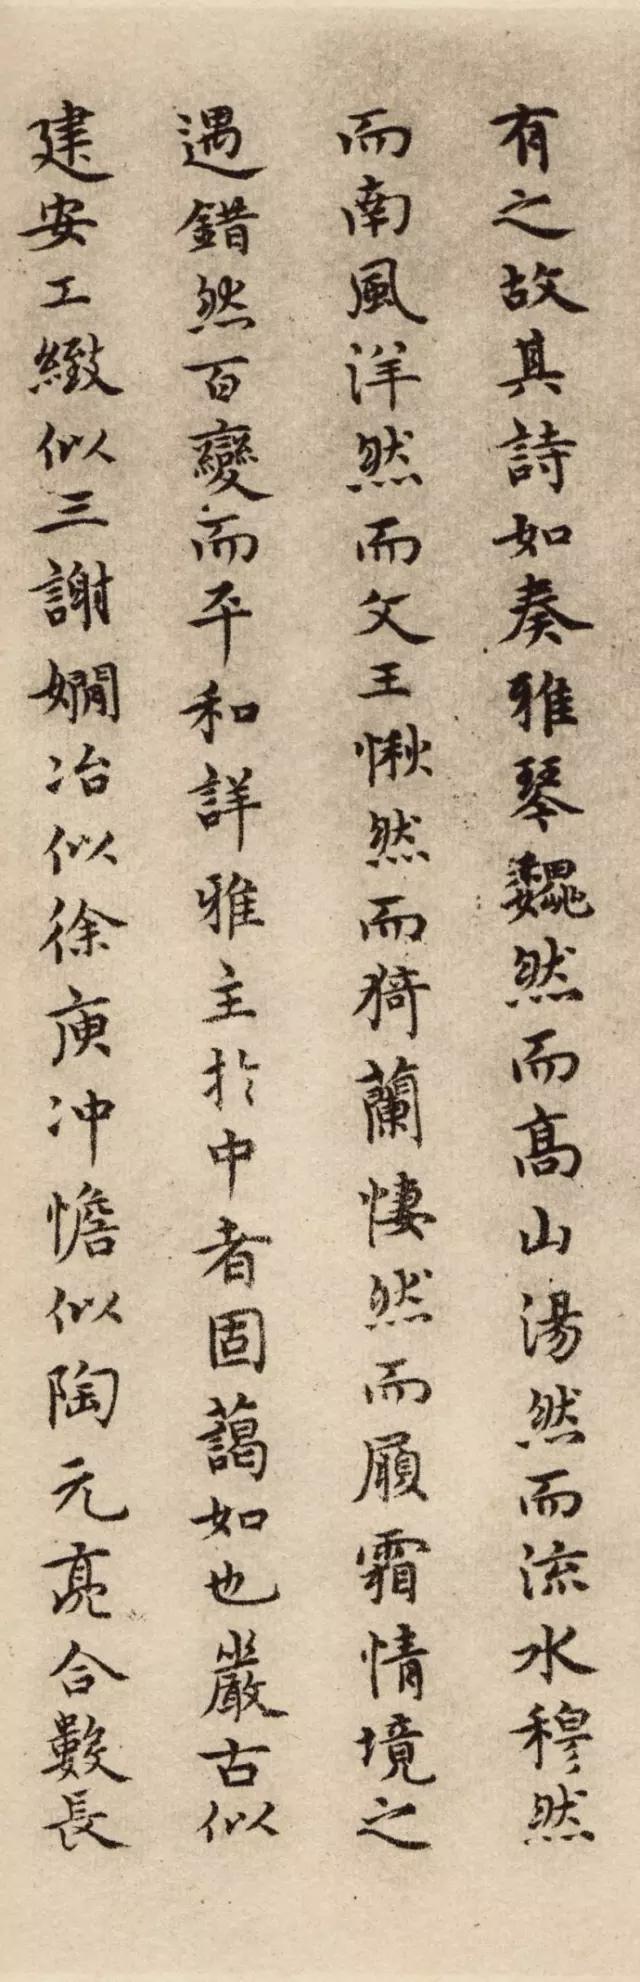 有之故其詩如奏雅琴巍然而高山湯然而流水穆然
而南風洋然而文王愀然而猗蘭悽然而履霜情境之
遇錯然百變而平和詳雅主於中者固藹如也嚴古似
建安工緻似三謝嫺冶似徐庾冲憺似陶元亮合數長